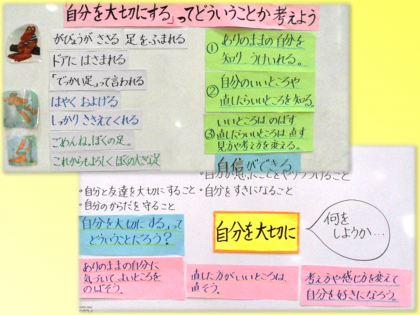 「自分を大切にする」ってどういうことか考えよう
がびょうがささる 足をふまれる
ドアに はさまれる
「でっかい足」って言われる
はやく およげる
しっかり ささえてくれる
ごめんね。ぼくの足。
これからもよろしく ぼくの大きな足
① ありのままの自分を
知り うけいれる。
② 自分のいいところや
直したらいいところを知る。
③ いいところはのばす
直したらいいところは直す
見方や考え方を変える。
自信ができる
・自分と友達を大切にすること
・自分のからだを守ること
・自分をすきになること
自分を大切にする、って
どういうことだろう？
自分を大切に
何を
しようか…
ありのままの自分に
気づいてよいところを
のばそう。
直した方がいいところは
直そう。
考え方や感じ方を変えて
自分を好きになろう。